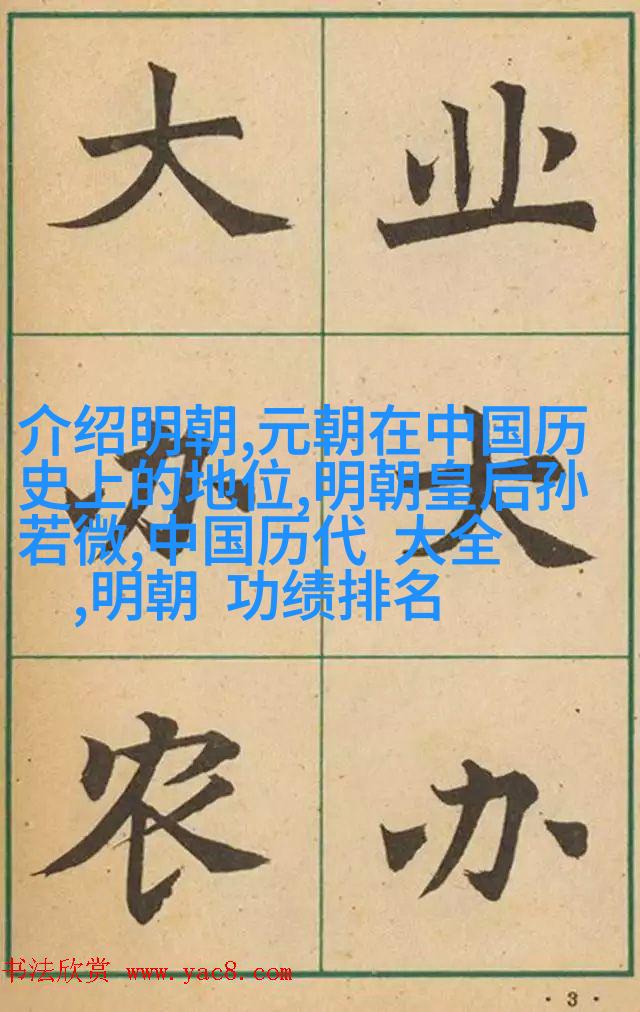 大办农
业大办
介绍明朝,元朝在中国历
史上的地位,明朝皇后孙
若微,中国历代 大全
,明朝 功绩排名
书法欣赏 www.yac8.com
· 3 ·